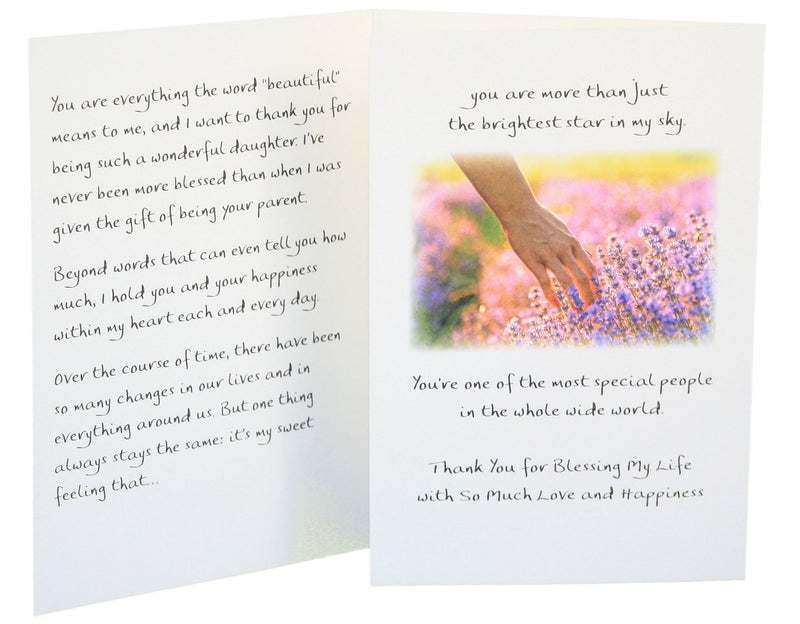 You are everything the word "beautiful"
means to me, and I want to thank you for
being such a wonderful daughter. I've
never been more blessed than when I was
given the gift of being your parent.
Beyond words that can even tell you how
much, I hold you and your happiness
within my heart each and every day.
Over the course of time, there have been
so many changes in our lives and in
everything around us. But one thing
always stays the same: it's my sweet
feeling that...
you are more than just
the brightest star in my sky.
You're one of the most special people
in the whole wide world.
Thank You for Blessing My Life
with So Much Love and Happiness